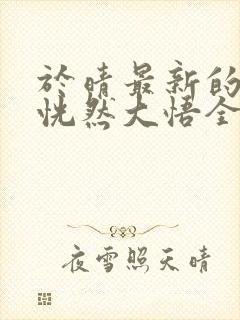 於晴最新的
恍然大悟全
夜雪照天晴